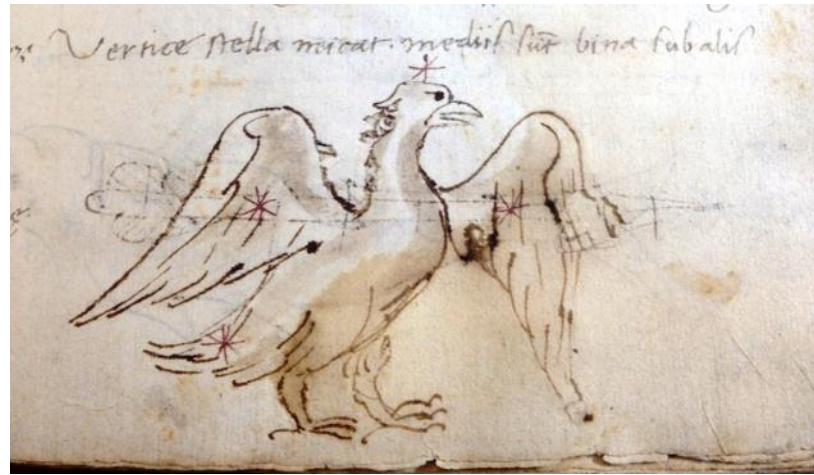 Vertice stella micat. mediis sūt bina sub alis